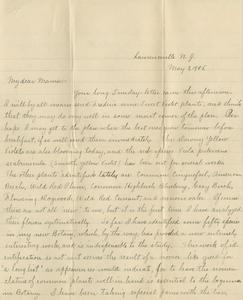 Lawrenceville N. J.
May 2, 1905
My dear Mamma:
Your long Sunday letter came this afternoon.
I will by all means send Fredrica some sweet violet plants, and think
that they may do very well in some moist corner of the place. Per-
haps I may get to the place where the best ones grow tomorrow before
breakfast; if so will send them immediately. The downy Yellow
Violets are also blooming today, and the
scabriuscula (Smooth yellow Violet) has been out for several weeks.
The other plants identified lately are Common Cinquefoil, American
Beech, Wild Red Plum, Common Highbush Blueberry, Gray Birch,
Flowering Dogwood, Wild Red Currant and various oaks. Of course
these are not all new to me, but it is the first time I have analyzed
them flowers systematically. So far I have identified some fifty species
in my new Botany, which by the way has proved a most extremely
interesting work, and is indispensable to the study. This work of id-
entification is not at all the result of a
"a long list" as appearances would indicate, for to have the nomen-
clature of common plants well in hand is essential to the beginner
in Botany. I have been taking especial pains with the